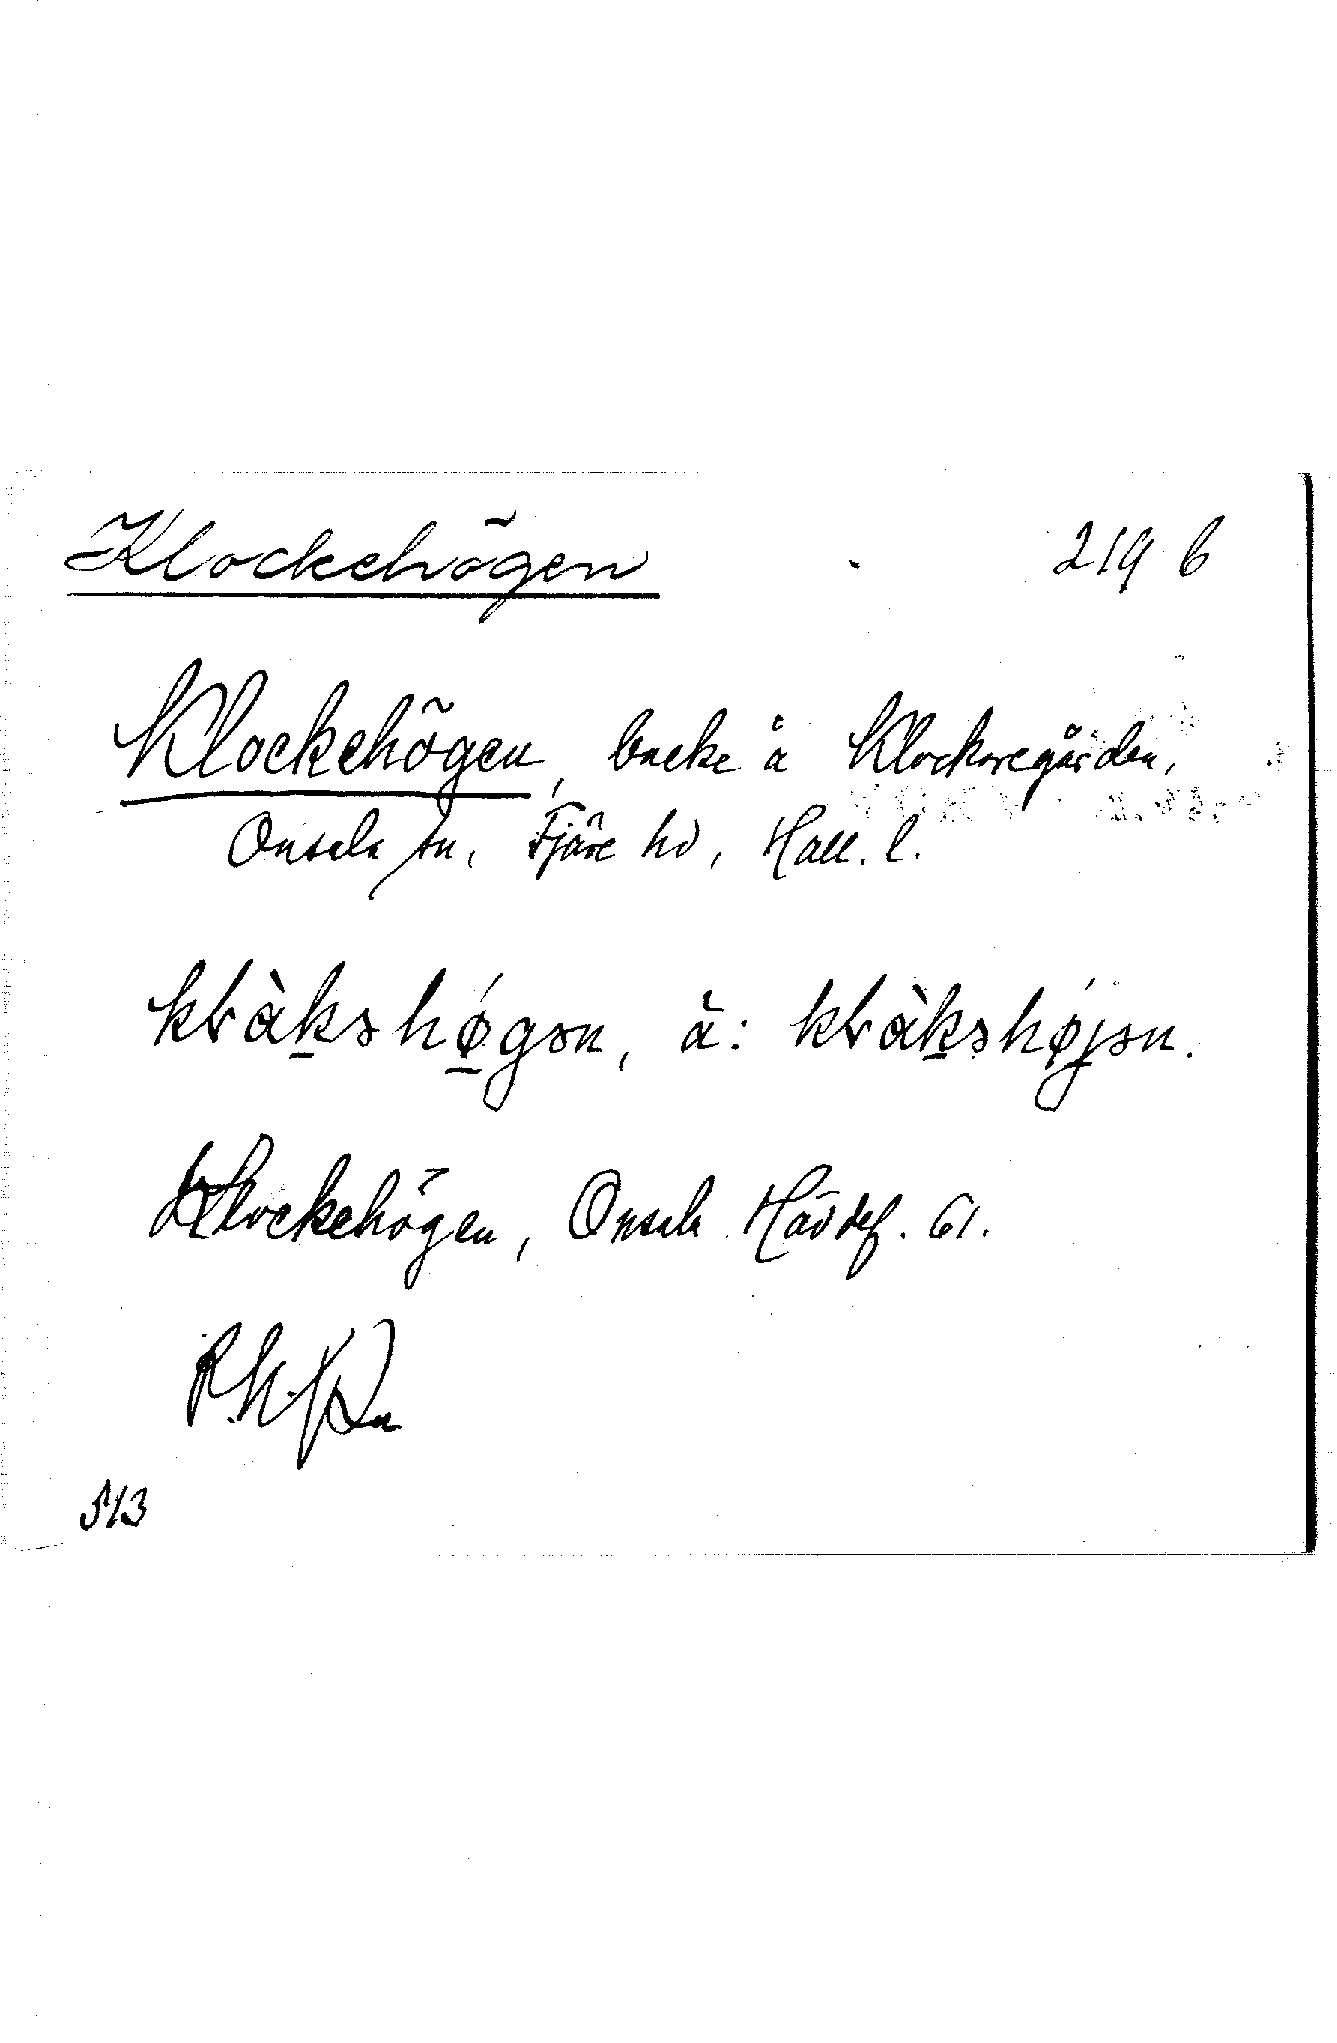 Klockehögen 219 b
Klockehögen, backe å Klockaregården,
Onsala sn, Fjäre hd, Hall. l.
klàkəhøgən, ä: klàkəhøjən.
Klockehögen, Onsala Hävdef. 61.
513